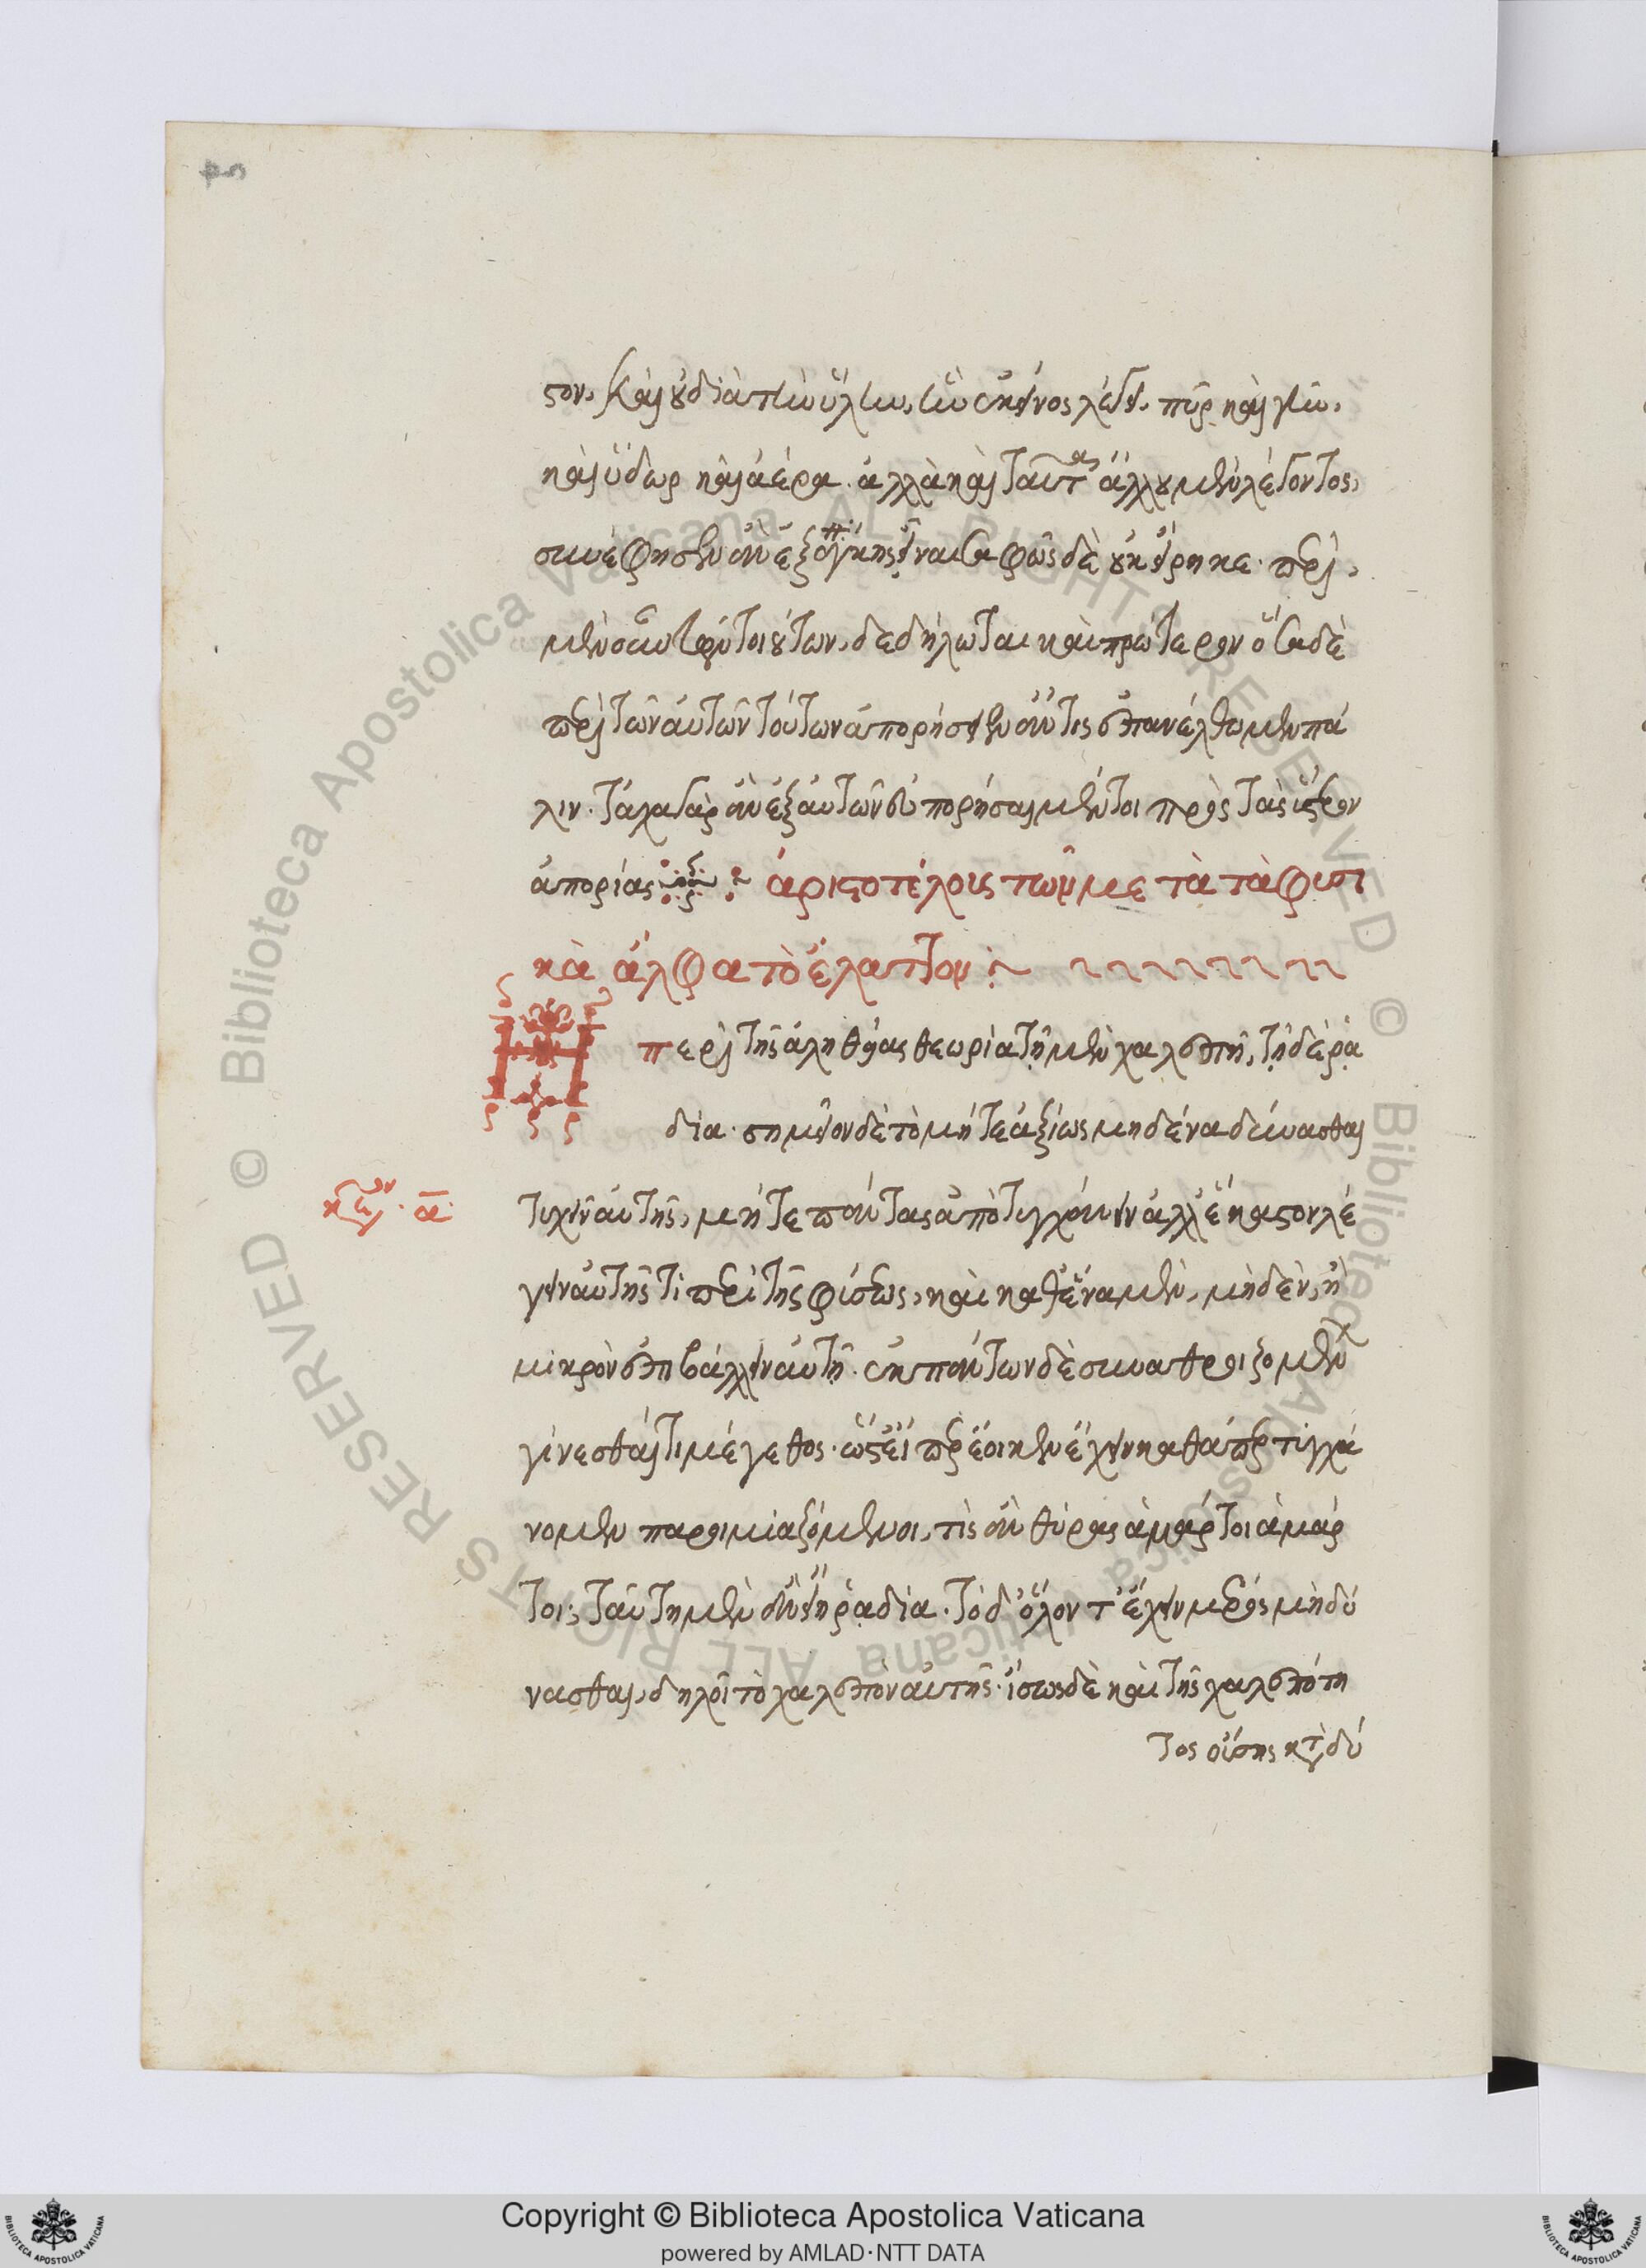 στον, καὶ οὐ διὰ τὴν ὕλην, ἣν ἐκεῖνος λέγει, πῦρ καὶ γῆν,
καὶ ὕδωρ καὶ ἀέρα. ἀλλὰ καὶ ταῦτα ἄλλου μὲν λέγοντος,
συνέφησεν ἂν ἐξ ἀνάγκης εἶναι σαφῶς δὲ οὐκ εἴρηκε. περὶ,
μὲν οὖν τοιούτων, δεδήλωται καὶ πρότερον ὅσα δὲ
περὶ τῶν αὐτῶν τούτων ἀπορήσειεν ἄν τις ἐπανέλθωμεν πά
λιν. τάχα γὰρ ἂν ἐξ αὐτῶν εὐπορήσαιμέν τοι πρὸς τὰς ὕστερον
ἀπορίας : ἀριστοτέλους τῶν με τὰ τὰ φυσι
κὰ ἄλφα τὸ ἔλαττον :~
περὶ τῆς ἀληθείας θεωρία τῇ μὲν χαλεπὴ, τῇ δὲ ῥᾳ
δία. σημεῖον δὲ τὸ μήτε ἀξίως μηδένα δύνασθαι
κεφάλαιον. α
τυχεῖν αὐτῆς, μήτε πάντας ἀποτυγχάνειν ἀλλ' ἕκαστον λέ
γειν αὐτῆς τὶ περὶ τῆς φύσεως, καὶ καθ' ἕνα μὲν, μηδὲν, ἢ
μικρὸν ἐπιβάλλειν αὐτῇ. ἐκ πάντων δὲ συναθροιζομένων
γίνεσθαί τι μέγεθος. ὥστ' εἴπερ ἔοικεν ἔχειν καθάπερ τυγχά
νομεν παροιμιαζόμενοι, τίς ἂν θύρας ἁμάρτοι ἁμάρ
τοι; ταύτῃ μὲν ἂν εἴη ῥᾳδία. τὸ δ' ὅλον τ' ἔχειν μέρος μὴ δύ
νασθαι, δηλοῖ τὸ χαλεπὸν αὐτῆς. ἴσως δὲ καὶ τῆς χαλεπότη
τος οὔσης κατὰ δύ
Copyright © Biblioteca Apostolica Vaticana
powered by AMLAD·NTT DATA